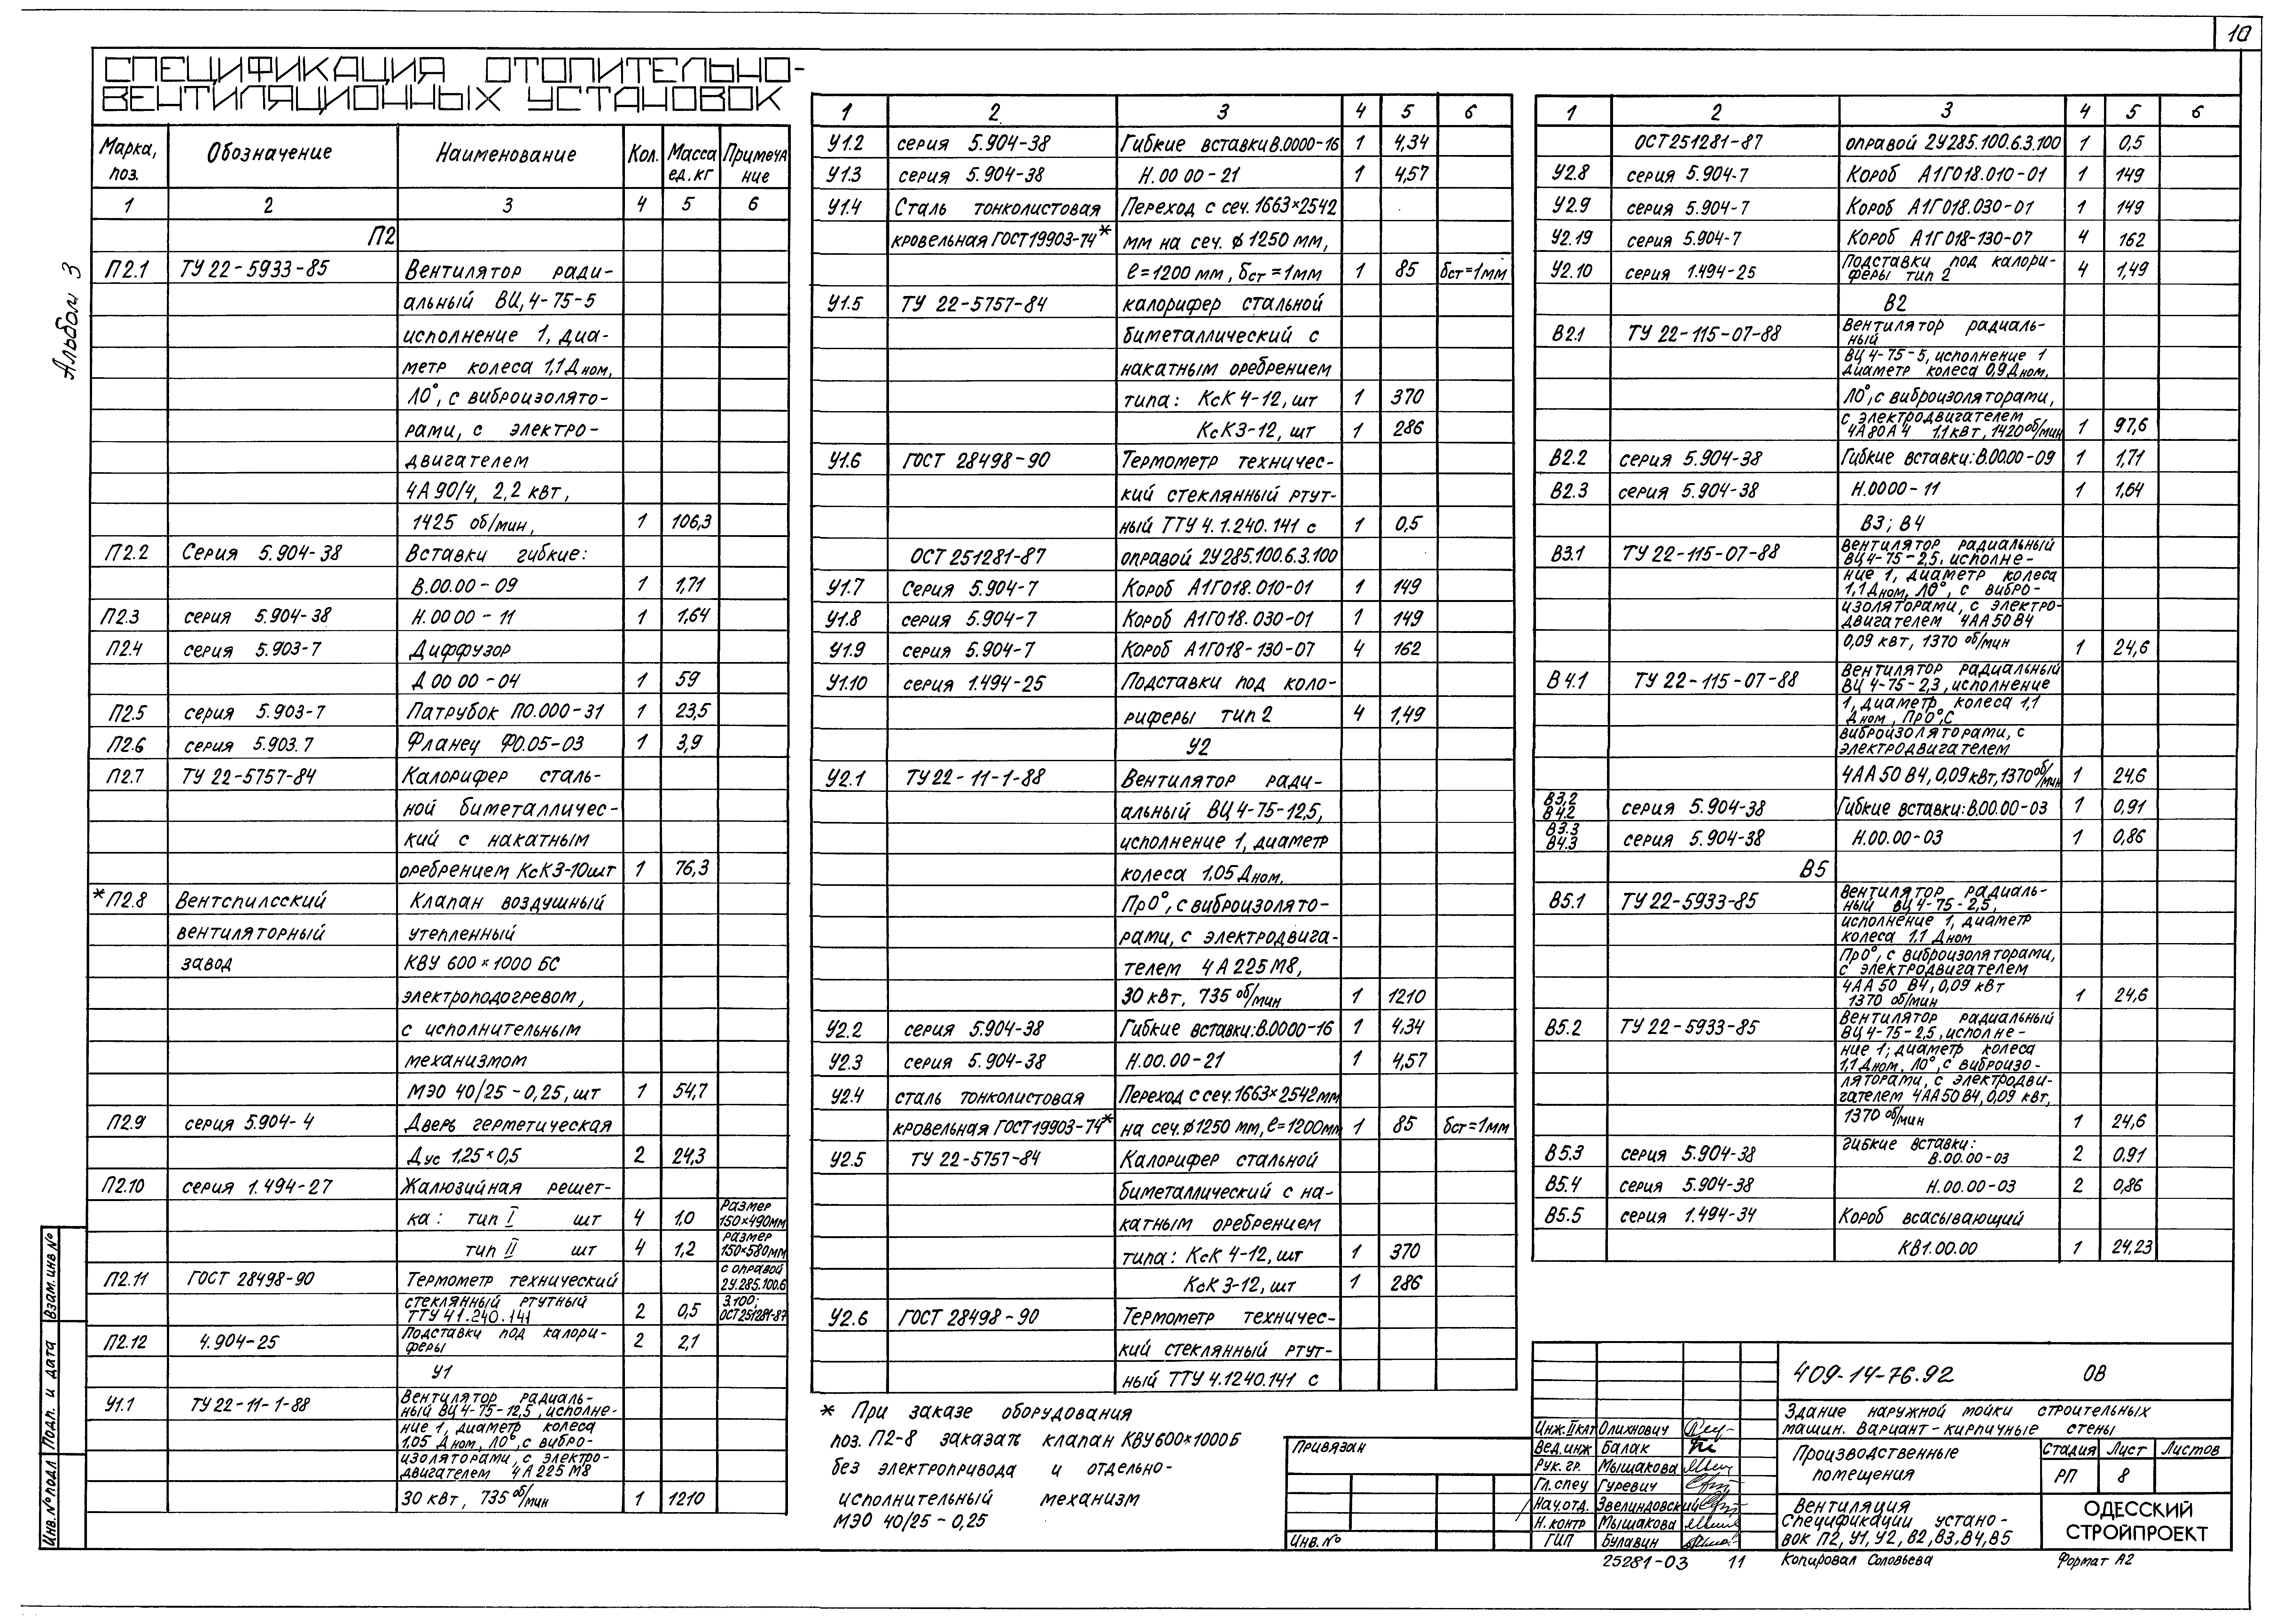 10
Альбом 3
СПЕЦИФИКАЦИЯ ОТОПИТЕЛЬНО-
ВЕНТИЛЯЦИОННЫХ УСТАНОВОК
Марка, поз. Обозначение Наименование Кол. Масса ед. кг Примечание
1 2 3 4 5 6
П2
П2.1 ТУ 22-5933-85 Вентилятор ради-
альный ВЦ, 4-75-5
исполнение 1, диа-
метр колеса 1,1 Дном,
Л0°, с виброизолято-
рами, с электро-
двигателем
4А 90/4, 2,2 кВт,
1425 об/мин, 1 106,3
П2.2 Серия 5.904-38 Вставки гибкие:
В.00.00-09 1 1,71
П2.3 серия 5.904-38 Н.00 00-11 1 1,64
П2.4 серия 5.903-7 Диффузор
Д 00 00-04 1 59
П2.5 серия 5.903-7 Патрубок ПО.000-31 1 23,5
П2.6 серия 5.903.7 Фланец Ф0.05-03 1 3,9
П2.7 ТУ 22-5757-84 Калорифер сталь-
ной биметалличес-
кий с накатным
оребрением КсК3-10шт 1 76,3
*П2.8 Вентспилсский Клапан воздушный
вентиляторный утепленный
завод КВУ 600×1000 БС
электроподогревом,
с исполнительным
механизмом
МЭО 40/25-0,25, шт 1 54,7
П2.9 серия 5.904-4 Дверь герметическая
Дус 1,25×0,5 2 24,3
П2.10 серия 1.494-27 Жалюзийная решет-
ка: тип I шт 4 1,0 Размер 150×490мм
тип II шт 4 1,2 размер 150×580мм
П2.11 ГОСТ 28498-90 Термометр технический с оправой 2У.285.100.6
стеклянный ртутный
ТТУ 41.240.141 2 0,5 3.100; ОСТ251281-87
П2.12 4.904-25 Подставки под калори-
феры 2 2,1
У1
У1.1 ТУ 22-11-1-88 Вентилятор радиаль-
ный ВЦ4-75-12,5, исполне-
ние 1, диаметр колеса
1,05 Дном, Л0°, с вибро-
изоляторами, с электро-
двигателем 4А 225 М8
30 кВт, 735 об/мин 1 1210
1 2 3 4 5 6
У1.2 серия 5.904-38 Гибкие вставки В.0000-16 1 4,34
У1.3 серия 5.904-38 Н.00 00-21 1 4,57
У1.4 Сталь тонколистовая Переход с сеч. 1663×2542
кровельная ГОСТ19903-74* мм на сеч. ϕ 1250 мм,
ℓ=1200 мм, δст=1мм 1 85 δст=1мм
У1.5 ТУ 22-5757-84 калорифер стальной
биметаллический с
накатным оребрением
типа: КсК 4-12, шт 1 370
КсК3-12, шт 1 286
У1.6 ГОСТ 28498-90 Термометр техничес-
кий стеклянный ртут-
ный ТТУ 4.1.240.141 с 1 0,5
ОСТ 251281-87 оправой 2У285.100.6.3.100
У1.7 Серия 5.904-7 Короб А1Г018.010-01 1 149
У1.8 серия 5.904-7 Короб А1Г018.030-01 1 149
У1.9 серия 5.904-7 Короб А1Г018-130-07 4 162
У1.10 серия 1.494-25 Подставки под коло-
риферы тип 2 4 1,49
У2
У2.1 ТУ 22-11-1-88 Вентилятор ради-
альный ВЦ 4-75-12,5,
исполнение 1, диаметр
колеса 1.05 Дном,
Пр0°, с виброизолято-
рами, с электродвига-
телем 4А 225М8,
30 кВт, 735 об/мин 1 1210
У2.2 серия 5.904-38 Гибкие вставки: В.0000-16 1 4,34
У2.3 серия 5.904-38 Н.00.00-21 1 4,57
У2.4 сталь тонколистовая Переход с сеч. 1663×2542мм
кровельная ГОСТ19903-74* на сеч. ϕ1250 мм, ℓ=1200мм 1 85 δст=1мм
У2.5 ТУ 22-5757-84 Калорифер стальной
биметаллический с на-
катным оребрением
типа: КсК 4-12, шт 1 370
КсК 3-12, шт 1 286
У2.6 ГОСТ 28498-90 Термометр техничес-
кий стеклянный ртут-
ный ТТУ 4.1240.141 с
* При заказе оборудования
поз. П2-8 заказать клапан КВУ600×1000Б
без электропривода и отдельно-
исполнительный механизм
МЭО 40/25-0,25
1 2 3 4 5 6
ОСТ251281-87 оправой 2У285.100.6.3.100 1 0,5
У2.8 серия 5.904-7 Короб А1Г018.010-01 1 149
У2.9 серия 5.904-7 Короб А1Г018.030-01 1 149
У2.19 серия 5.904-7 Короб А1Г 018-130-07 4 162
У2.10 серия 1.494-25 Подставки под калори-
феры тип 2 4 1,49
В2
В2.1 ТУ 22-115-07-88 Вентилятор радиаль-
ный
ВЦ 4-75-5, исполнение 1
диаметр колеса 0,9 Дном,
Л0°, с виброизоляторами,
с электродвигателем
4А80А4 1,1 кВт, 1420 об/мин 1 97,6
В2.2 серия 5.904-38 Гибкие вставки: В.00.00-09 1 1,71
В2.3 серия 5.904-38 Н.0000-11 1 1,64
В3; В4
В3.1 ТУ 22-115-07-88 Вентилятор радиальный
ВЦ4-75-2,5, исполне-
ние 1, диаметр колеса
1,1 Дном, Л0°, с вибро-
изоляторами, с электро-
двигателем 4АА50В4
0,09 кВт, 1370 об/мин 1 24,6
В4.1 ТУ 22-115-07-88 Вентилятор радиальный
ВЦ 4-75-2,3, исполнение
1, диаметр колеса 1,1
Дном, Пр0°, С
виброизоляторами, с
электродвигателем
4АА 50 В4, 0,09 кВт, 1370 об/мин 1 24,6
В3,2 В4.2 серия 5.904-38 Гибкие вставки: В.00.00-03 1 0,91
В3.3 В4.3 серия 5.904-38 Н.00.00-03 1 0,86
В5
В5.1 ТУ 22-5933-85 Вентилятор радиаль-
ный ВЦ4-75-2,5,
исполнение 1, диаметр
колеса 1,1 Дном
Пр0°, с виброизоляторами,
с электродвигателем
4АА 50 В4, 0,09 кВт
1370 об/мин 1 24,6
В5.2 ТУ 22-5933-85 Вентилятор радиальный
ВЦ 4-75-2,5, исполне-
ние 1; диаметр колеса
1,1 Дном, Л0°, с виброизо-
ляторами, с электродви-
гателем 4АА50В4, 0,09 кВт,
1370 об/мин 1 24,6
В5.3 серия 5.904-38 гибкие вставки:
В.00.00-03 2 0.91
В5.4 серия 5.904-38 Н.00.00-03 2 0,86
В5.5 серия 1.494-34 Короб всасывающий
КВ1.00.00 1 24,23
Взам. инв №
Подп. и дата
Инв. № подл
Привязан
Инв. №
Инж. II кат Олихнович
Вед. инж Балак
Рук. гр. Мышакова
Гл. спец Гуревич
Нач. отд. Звелиндовский
Н. контр Мышакова
ГИП Булавин
409-14-76.92 ОВ
Здание наружной мойки строительных
машин. Вариант-кирпичные стены
Производственные
помещения
Стадия Лист Листов
РП 8
Вентиляция
Спецификации устано-
вок П2, У1, У2, В2, В3, В4, В5
ОДЕССКИЙ
СТРОЙПРОЕКТ
25281-03 11 Копировал Соловьева Формат А2